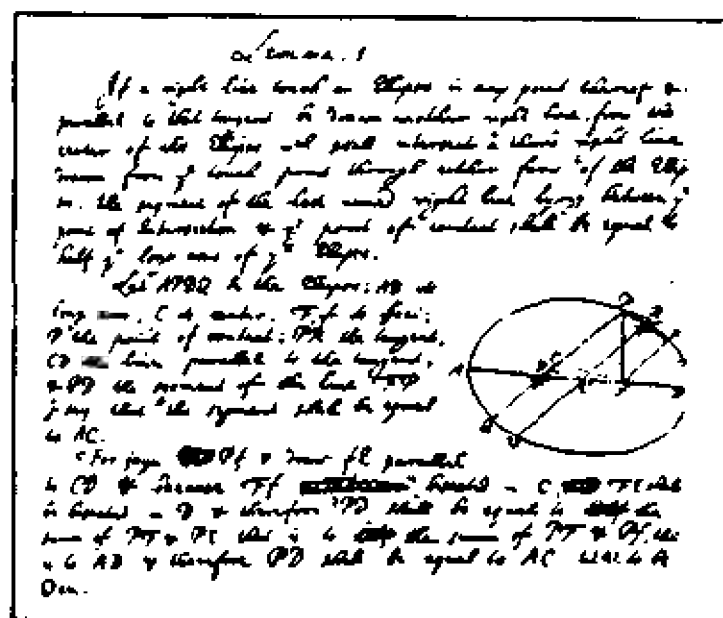 Lemma. 1
If a right line touch an Ellipsis in any point thereof &
parallel to that tangent be drawn another right line from the
center of the Ellipsis wch shall intersect a third right line
drawn from ye touch point through either focus of the Ellip
sis. the segment of the last named right line lying between ye
point of intersection & ye point of contact shall be equal to
half ye long axis of ye Ellipsis.
Let APBQ be the Ellipsis; AB its
long axis, C its center, F, f its foci;
P the point of contact; PR the tangent,
CD the line parallel to the tangent,
& PD the segment of the line FP
I say that the segment shall be equal
to AC.
For joyn Pf & draw fE parallel
to CD & because Ff bisected in C, FE shall
be bisected in D & therefore PD shall be equal to half the
summ of PF & PE that is to half the summ of PF & Pf, that
is to AB & therefore PD shall be equal to AC W.W. to be
Dem.
A
P
C